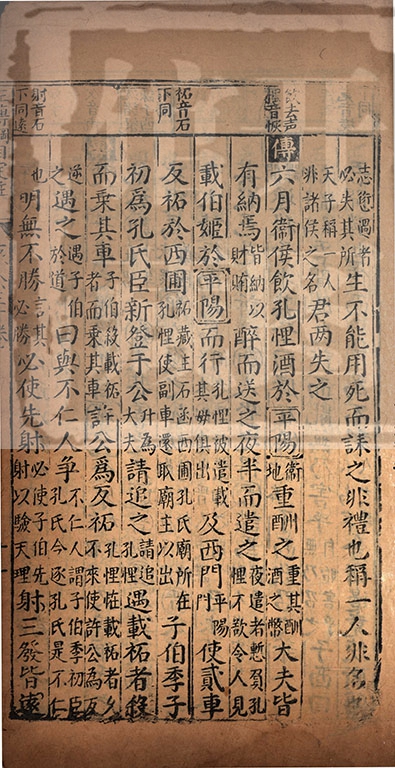 飲去声
悝音恢
祏音石
下同
射音石
下同遠
志愆過者必失其所生不能用死而誄之非禮也稱一人非名也
天子稱一人非諸侯之名君两失之
傳六月衛侯飲孔悝酒於平陽衛地重酬之重其酬酒之幣大夫皆
有納焉皆納以財賄醉而送之夜半而遣之夜遣者慙負孔悝不欲令人見
載伯姬於平陽而行孔悝被遣載其母俱出及西門平陽門使貳車
反祏於西圃祏藏主石函西圃孔氏廟所在孔悝使副車還取廟主以出子伯季子
初爲孔氏臣新登于公升為大夫請追之請追孔悝遇載祏者殺
而乘其車子伯殺載祏者而乘其車許公爲反祏孔悝怪載祏者久不來使許公為反
逆之遇之遇子伯於道曰與不仁人爭不仁人謂子伯季初臣孔氏今逐孔氏是不仁
也明無不勝言其必勝必使先射必使子伯先射以驗天理射三發皆遠